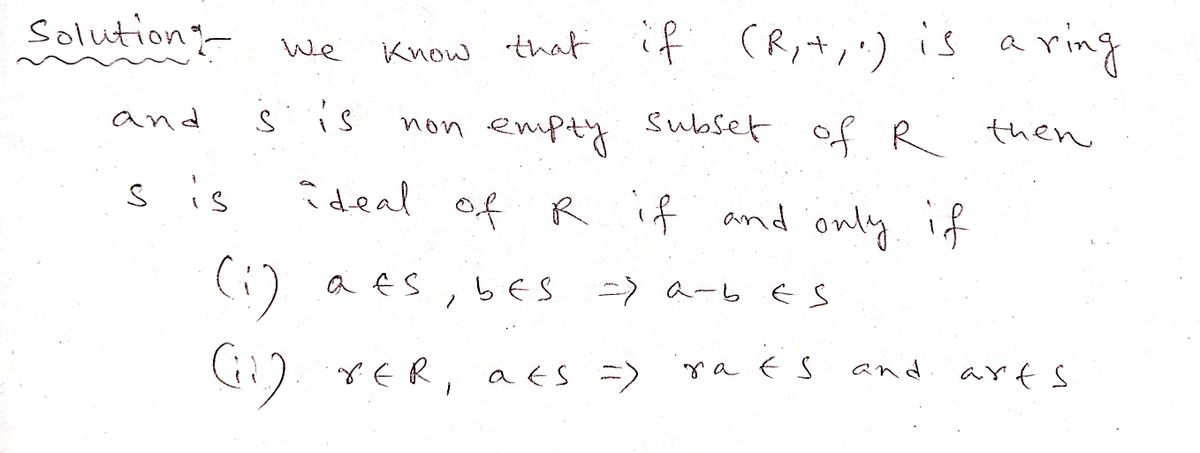 Solution:- We know that if (R,+,·) is a ring
and S is non empty subset of R then
S is ideal of R if and only if
(i) a ∈ S, b ∈ S => a-b ∈ S
(ii) r ∈ R, a ∈ S => ra ∈ S and ar ∈ S